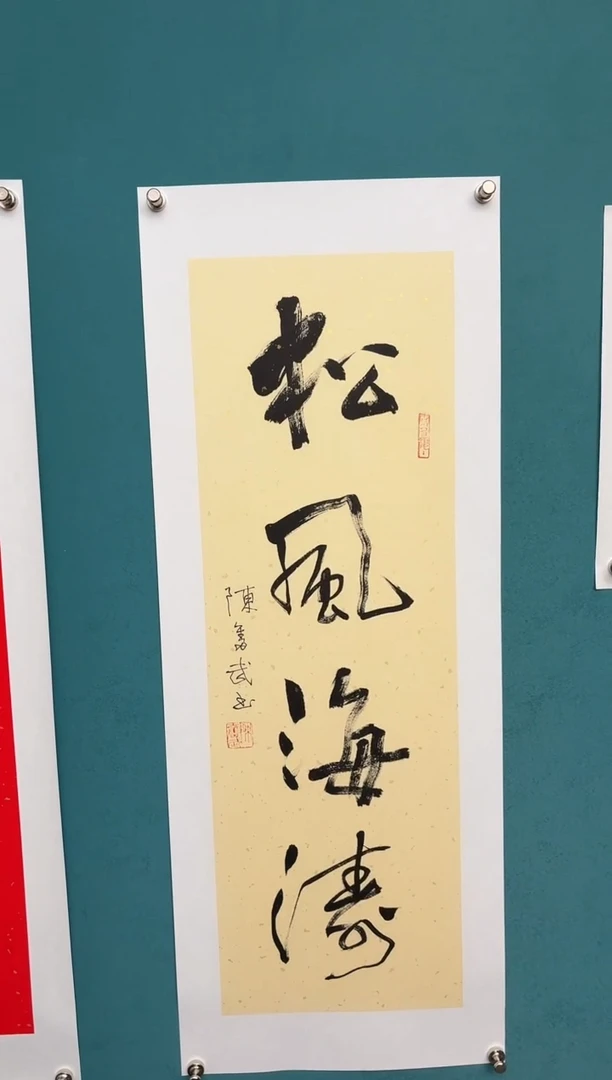 松風海濤
陳武书